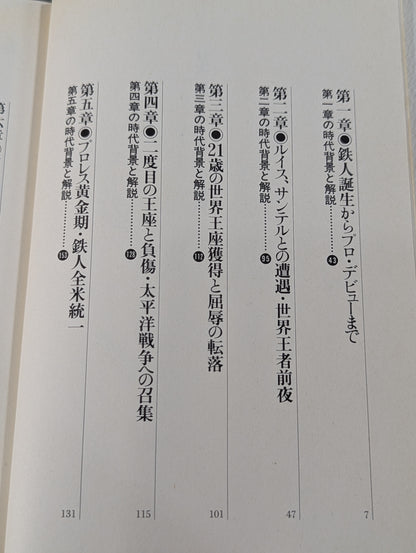 第一章◉鉄人誕生からプロ・デビューまで
7
第一章の時代背景と解説………43
第二章◉ルイス、サンテルとの遭遇・世界王者前夜
47
第二章の時代背景と解説………95
第三章◉21歳の世界王座獲得と屈辱の転落
101
第三章の時代背景と解説………112
第四章◉二度目の王座と負傷・太平洋戦争への召集
115
第四章の時代背景と解説………128
第五章◉プロレス黄金期・鉄人全米統一
131
第五章の時代背景と解説………153